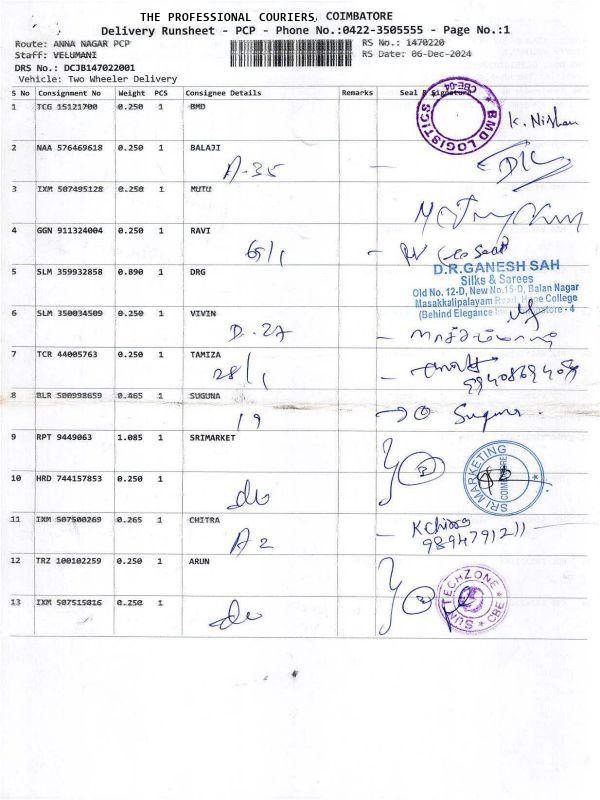 THE PROFESSIONAL COURIERS, COIMBATORE
Delivery Runsheet - PCP - Phone No.:0422-3505555 - Page No.:1
Route: ANNA NAGAR PCP
RS No.: 1470220
Staff: VELUMANI
RS Date: 06-Dec-2024
DRS No.: DCJB147022001
Vehicle: Two Wheeler Delivery
S No Consignment No Weight PCS Consignee Details Remarks Seal & Signature
1 TCG 15121700 0.250 1 BMD
BMD LOGISTICS CBE-04
K. Nishan
2 NAA 576469618 0.250 1 BALAJI
A-35
3 IXM 507495128 0.250 1 MUTU
4 GGN 911324004 0.250 1 RAVI
65/1
5 SLM 359932858 0.890 1 DRG
D.R.GANESH SAH
Silks & Sarees
Old No. 12-D, New No.15-D, Balan Nagar
Masakkalipalayam Road, Hope College
(Behind Elegance Coimbatore - 4
6 SLM 350034509 0.250 1 VIVIN
D.27
7 TCR 44005763 0.250 1 TAMIZA
28/1
8 BLR 500998659 0.465 1 SUGUNA
19
Suguna
9 RPT 9449063 1.085 1 SRIMARKET
2
SRI MARKETING COIMBATORE
10 HRD 744157853 0.250 1
do
11 IXM 507500269 0.265 1 CHITRA
A2
K Chitra
9894791211
12 TRZ 100102259 0.250 1 ARUN
2
SUN TECHZONE CBE
13 IXM 507515016 0.250 1
do